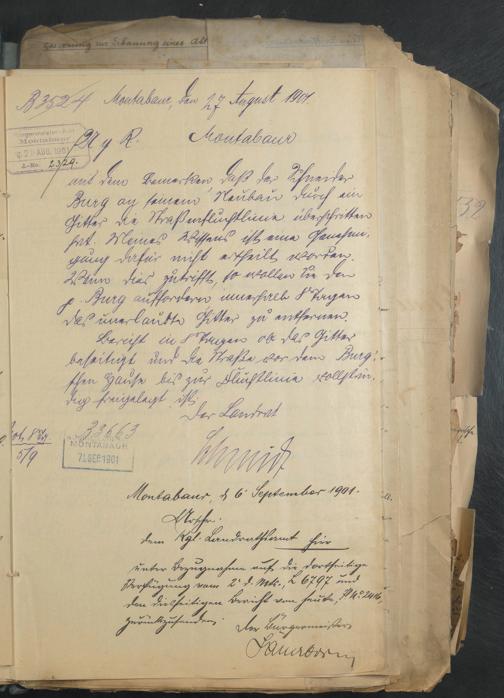 B 3524 Montabaur, den 27 August 1901.
Bürgermeister-Amt
Montabaur
29 AUG. 1901
J.-No. 2329.
R. Montabaur
mit dem Bemerken daß der Schneider
Burg an seinem Neubau durch ein
Gitter die Straßenfluchtlinie überschritten
hat. Meines Wissens ist eine Genehmi-
gung dafür nicht ertheilt worden.
Wenn dies zutrifft, so wollen Sie den
p. Burg auffordern innerhalb 8 Tagen
das unerlaubte Gitter zu entfernen.
Bericht in 8 Tagen ob das Gitter
beseitigt und die Straße vor dem Burg'-
schen Hause bis zur Fluchtlinie vollstän-
dig freigelegt ist.
Der Landrat
33663
MONTABAUR
7 SEP. 1901
5/9
Schmidt
Montabaur, d 6 September 1901.
Urschr.
dem Kgl. Landrathsamt hier
unter Bezugnahme auf die dortseitige
Verfügung vom 2. d. Mts., L 6797 und
den diesseitigen Bericht von heute,
zurückzusenden.
Der Bürgermeister
Sauerborn